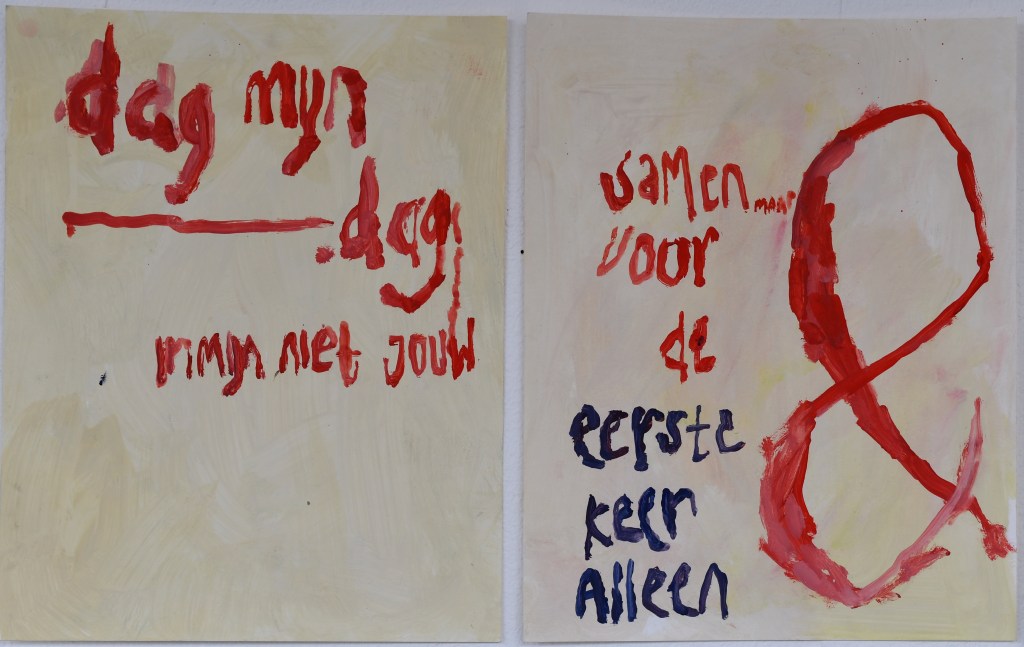 dag mijn
dag
in mijn niet jouw
samen maar
voor
de
eerste
keer
Alleen
&